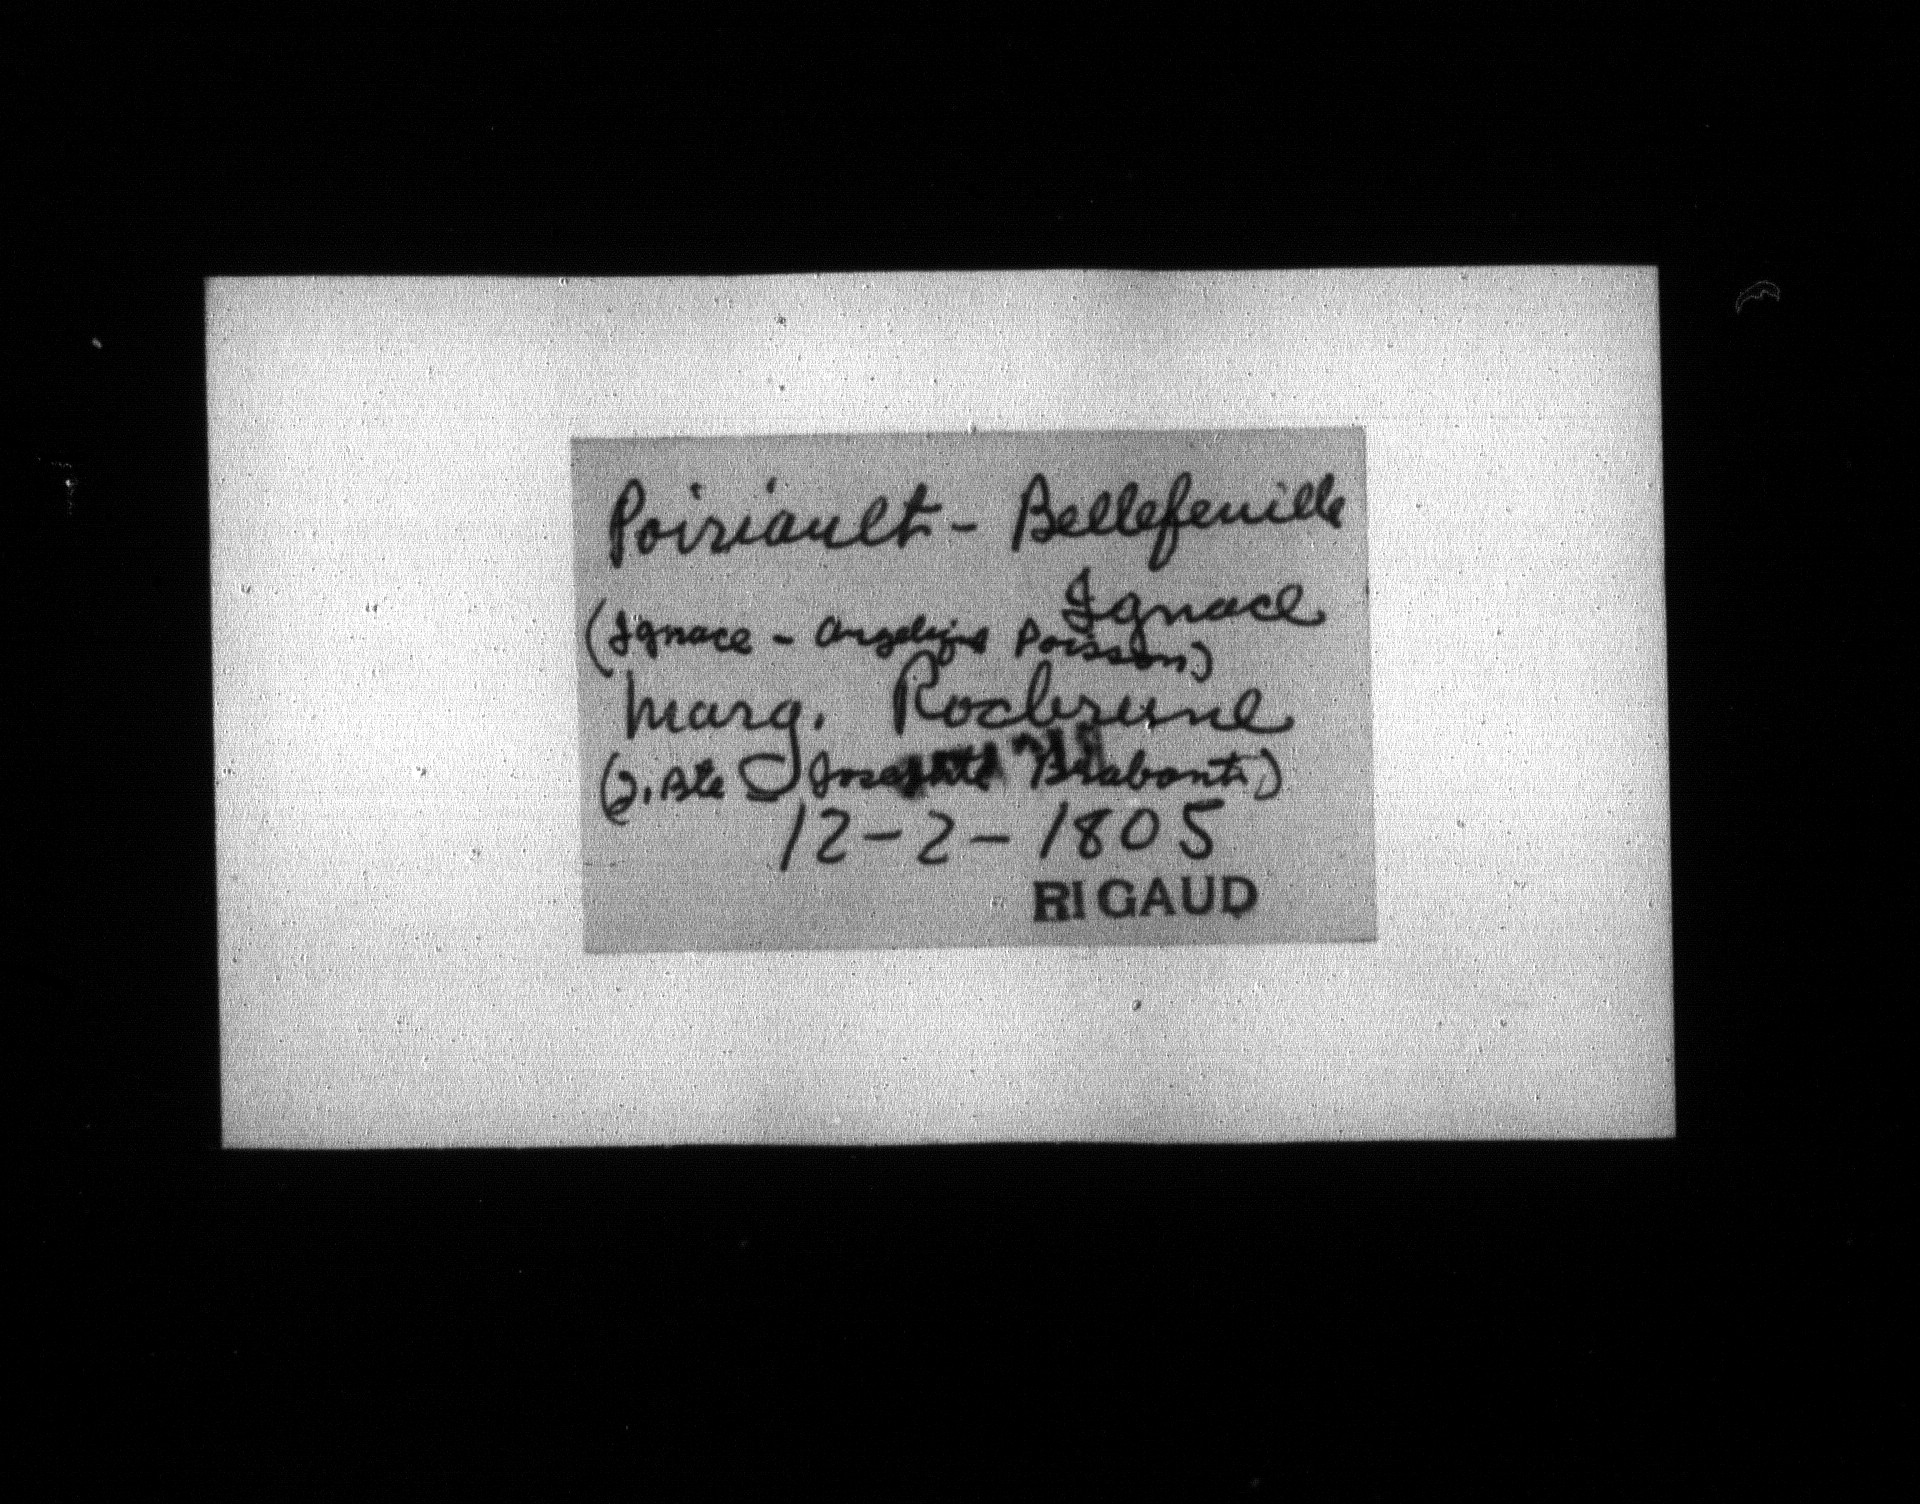 Poiriault - Bellefeuille
Ignace
(Ignace - Angelique Poisson)
Marg. Rocbrune
(J. Bte - Josephte Brabant)
12-2-1805
RIGAUD